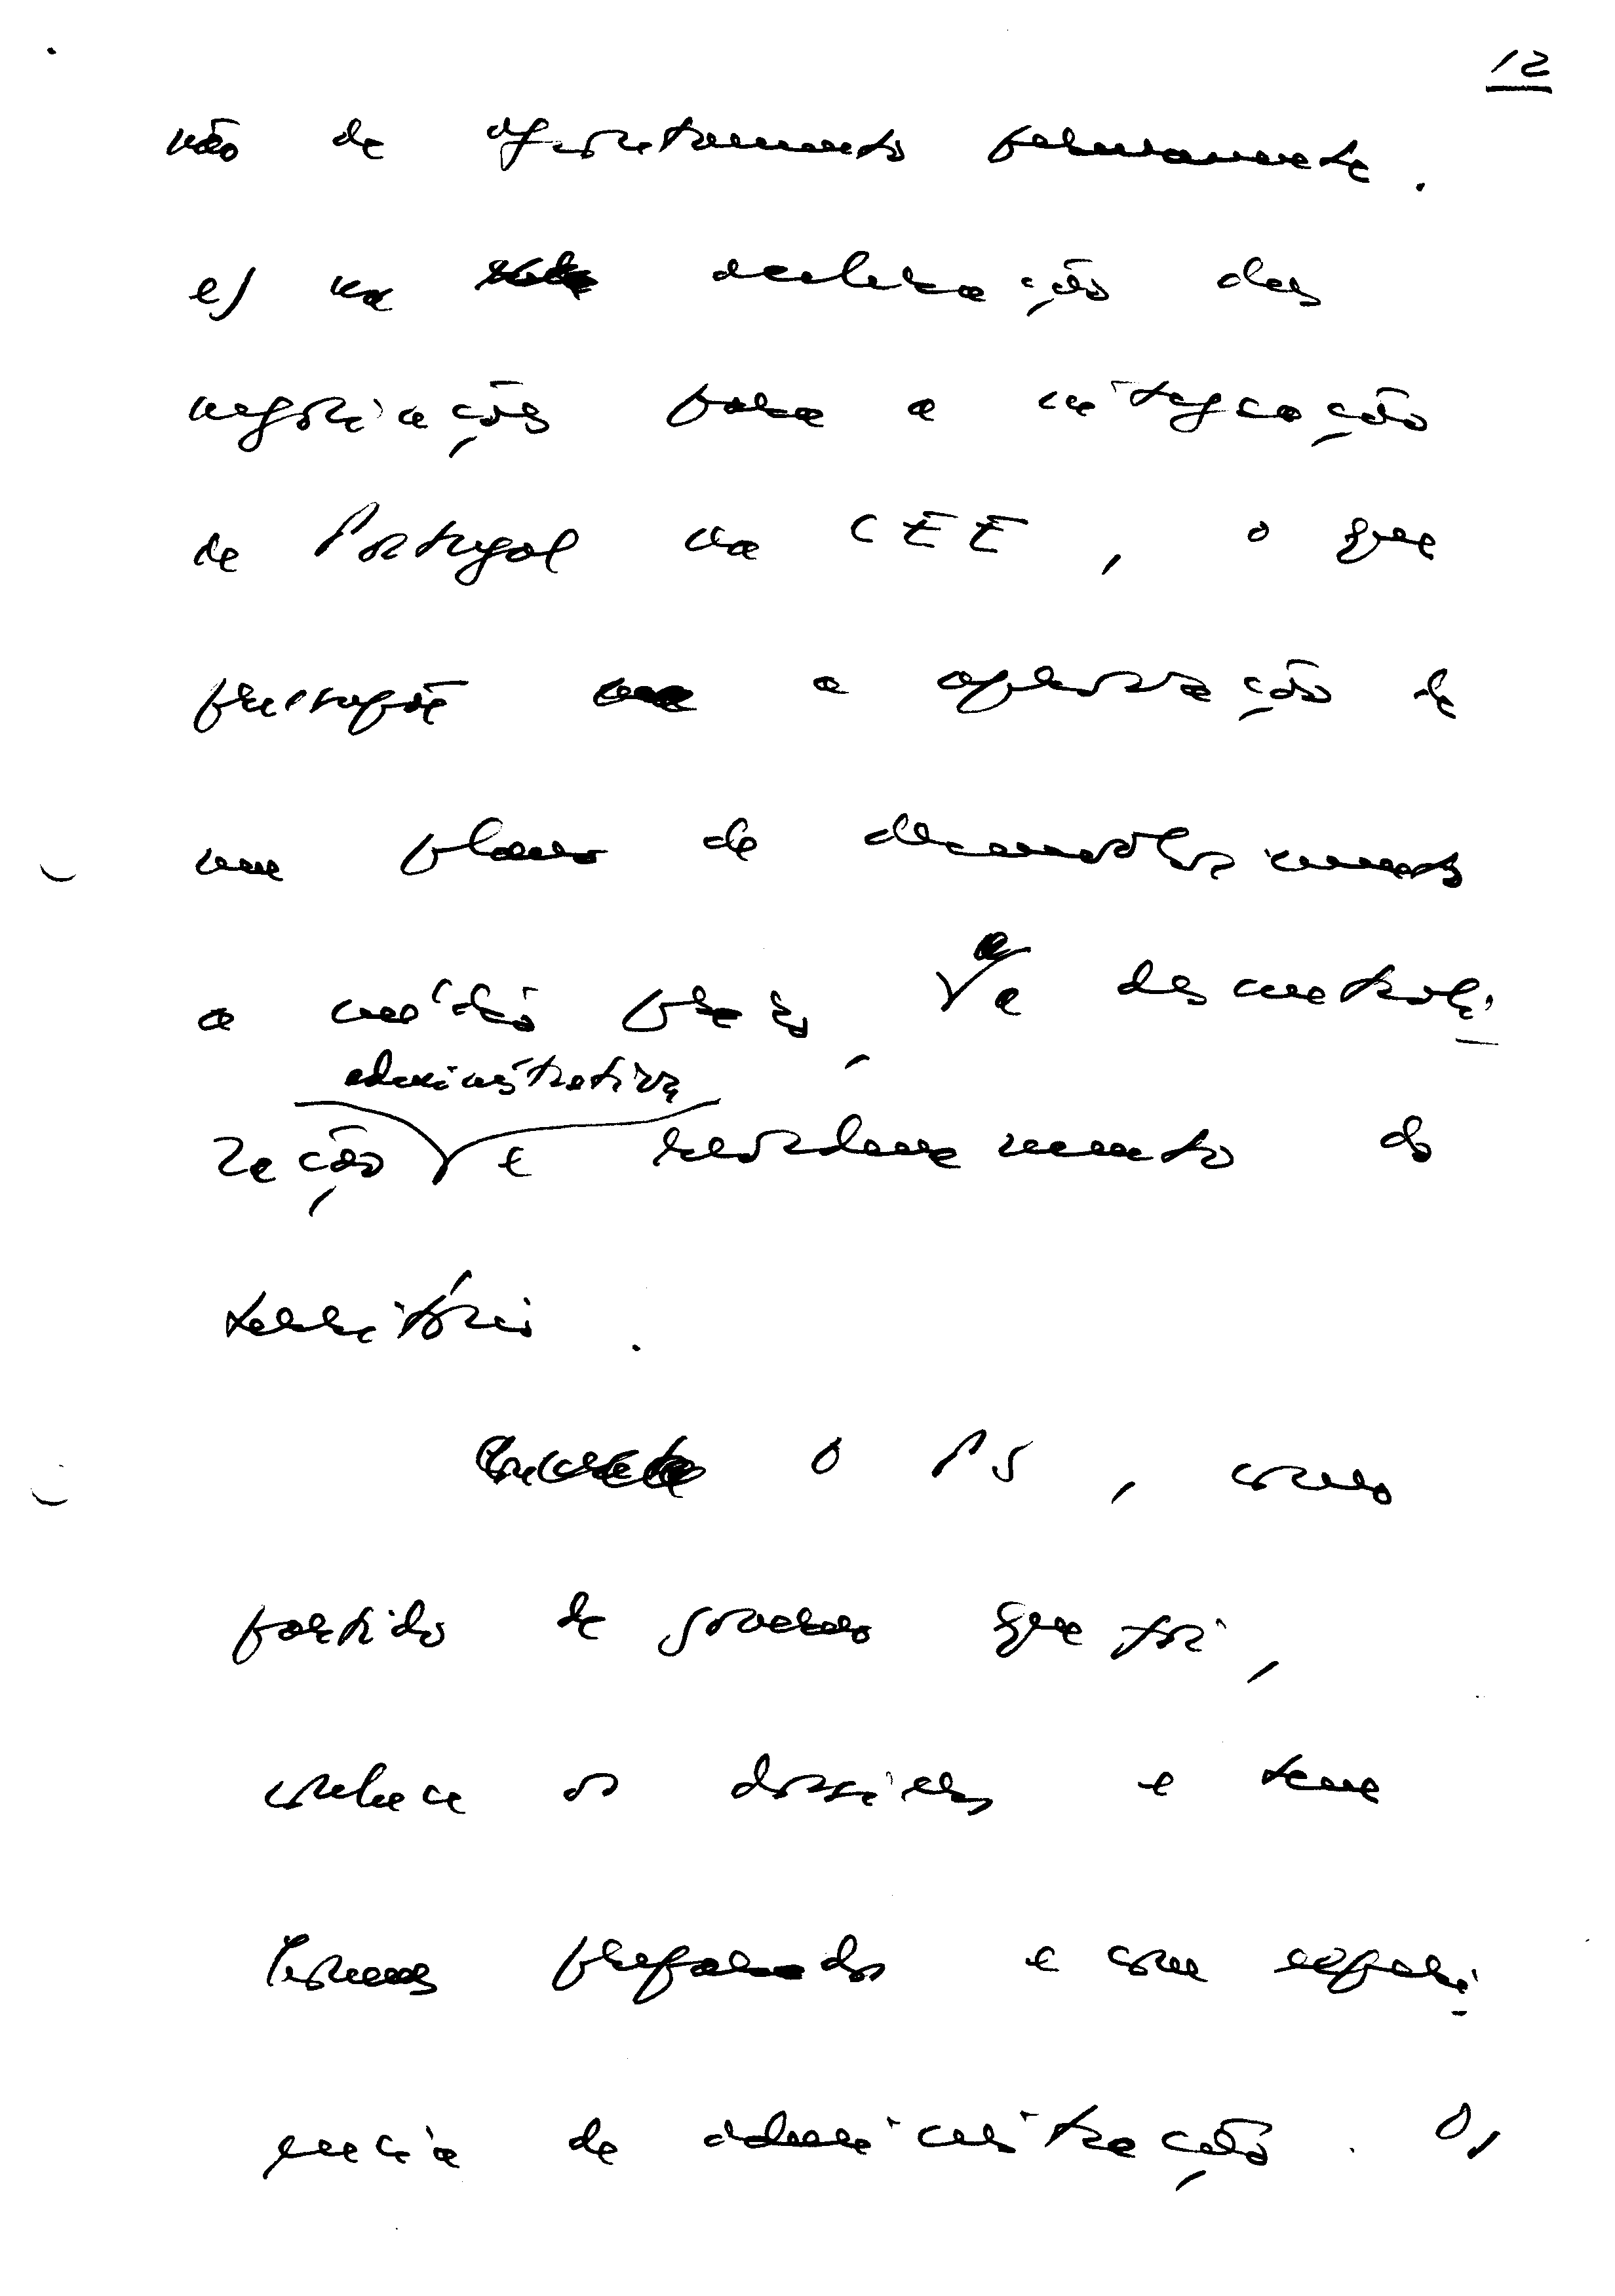 12
não de afrontamento permanente.
e) na aceleração das
negociações para a integração
de Portugal na CEE, o que
pressupõe a aprovação de
um plano de desenvolvimento
a médio prazo, a descentrali
administrativa
zação e reordenamento do
território.
O PS, como
partido de governo que foi,
conhece os dossiers e tem
homens preparados e com experi
ência de administração. Os